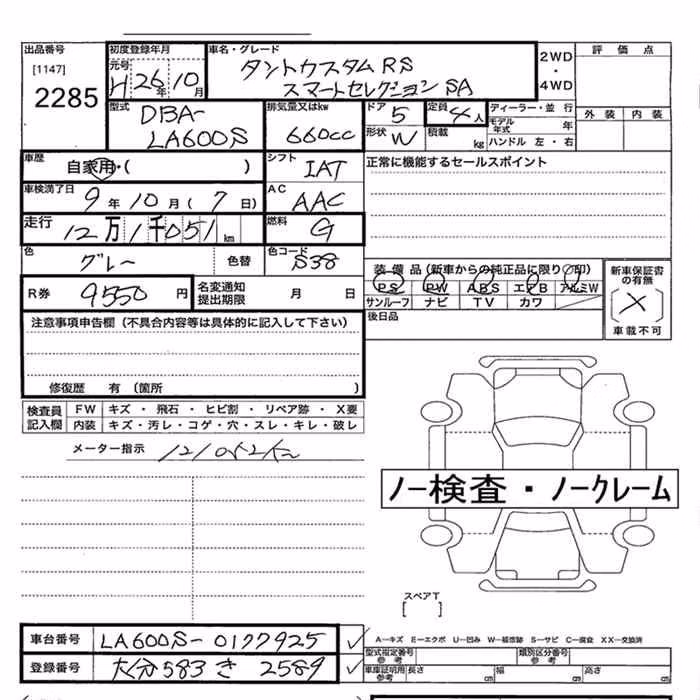 出品番号 初度登録年月 車名・グレード 2WD・4WD 評価点
[1147] 元号 H26年10月 タントカスタムRS
2285 スマートセレクション SA
型式 DBA-LA600S 排気量又はkw 660cc ドア 5 定員 4人 ディーラー・並行 外装 内装
形状 W 積載 kg モデル年式 年
ハンドル 左・右
車歴 自家用・( ) シフト IAT 正常に機能するセールスポイント
車検満了日 9年10月(7日) AC AAC
走行 12万1千051km 燃料 G
色 グレー 色替 色コード S38
装備品(新車からの純正品に限り○印) 新車保証書の有無
R券 9550円 名変通知提出期限 月 日 PS PW ABS エアB アルミW (×)
サンルーフ ナビ TV カワ 車載不可
注意事項申告欄(不具合内容等は具体的に記入して下さい) 後日品
修復歴 有(箇所 )
検査員記入欄 FW キズ・飛石・ヒビ割・リペア跡・X要
内装 キズ・汚レ・コゲ・穴・スレ・キレ・破レ
メーター指示 121052km
ノー検査・ノークレーム
スペアT
[ ]
車台番号 LA600S-0177925 A―キズ E―エクボ U―凹み W―補修跡 S―サビ C―腐食 XX―交換済
型式指定番号 参考 類別区分番号 参考
登録番号 大分583き2589 車庫証明用 参考 長さ cm 幅 cm 高さ cm